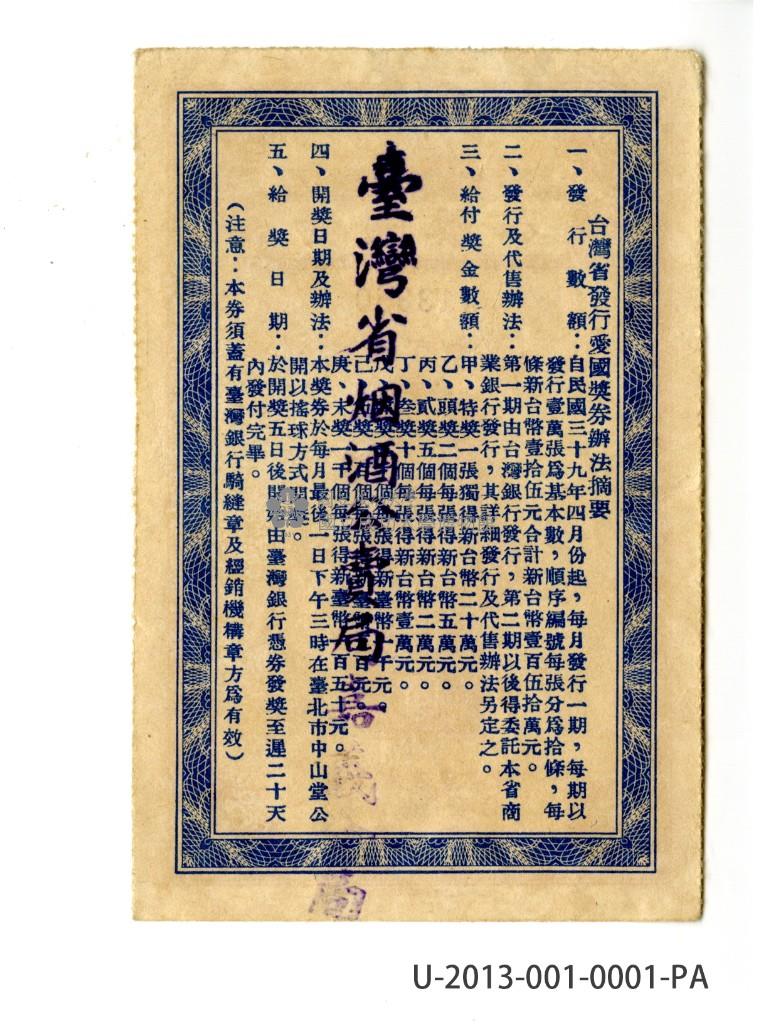 台灣省發行愛國獎券辦法摘要
一、發行數額：自民國三十九年四月份起，每月發行一期，每期以
發行壹萬張為基本數，順序編號每張分為拾條，每
條新台幣壹拾伍元合計新台幣壹百伍拾萬元。
二、發行及代售辦法：第一期由台灣銀行發行，第二期以後得委託本省商
業銀行發行，其詳細發行及代售辦法另定之。
三、給付獎金數額：甲、特獎一張獨得新台幣二十萬元。
乙、頭獎二個每張得新台幣五萬元。
丙、貳獎五個每張得新台幣二萬元。
丁、叁獎十個每張得新台幣壹萬元。
戊、獎個每張得新臺幣千元。
己、獎個每張得新臺幣百元。
庚、末獎一千個每張得新臺幣一百五十元。
臺灣省烟酒公賣局
嘉義分局
四、開獎日期及辦法：本獎券於每月最後一日下午三時在臺北市中山堂公
開以搖球方式開獎。
五、給獎日期：於開獎五日後開始由臺灣銀行憑券發獎至遲二十天
內發付完畢。
（注意：本券須蓋有臺灣銀行騎縫章及經銷機構章方為有效）
U-2013-001-0001-PA